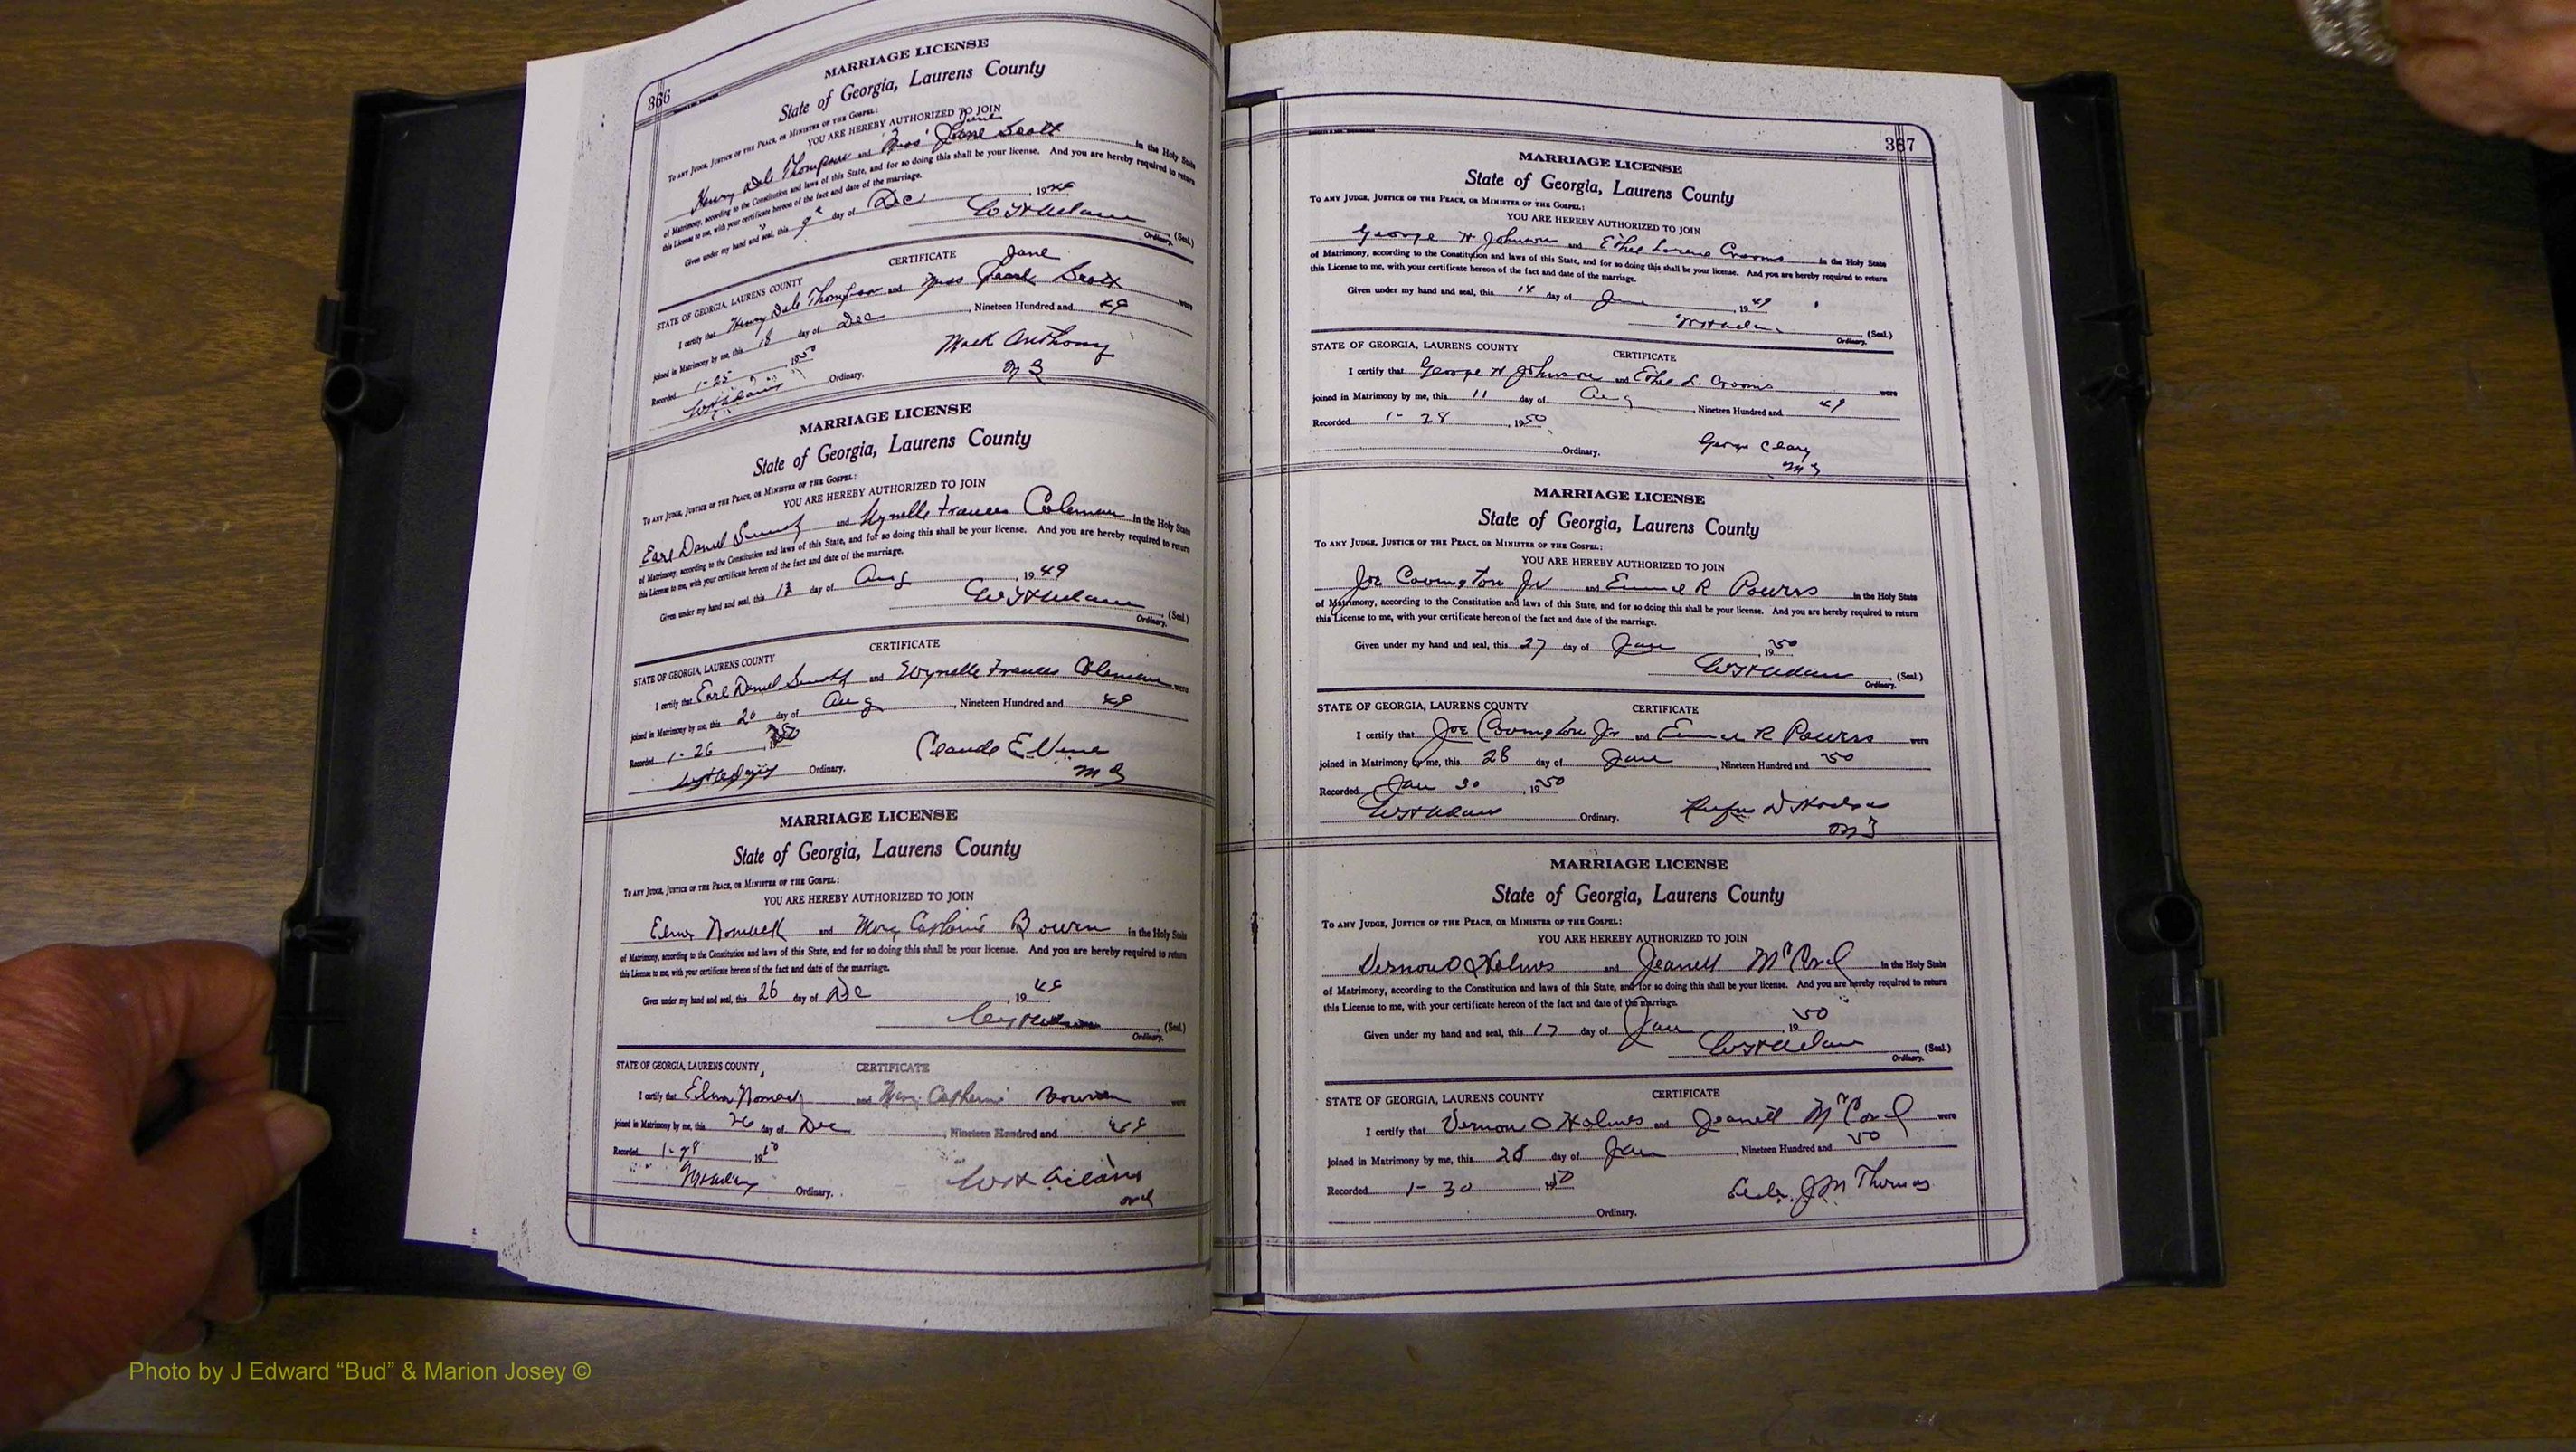 366
MARRIAGE LICENSE
State of Georgia, Laurens County
TO ANY JUDGE, JUSTICE OF THE PEACE, OR MINISTER OF THE GOSPEL:
YOU ARE HEREBY AUTHORIZED TO JOIN
Jane
Henry Dale Thompson and Miss Scott in the Holy State
of Matrimony, according to the Constitution and laws of this State, and for so doing this shall be your license. And you are hereby required to return
this License to me, with your certificate hereon of the fact and date of the marriage.
Given under my hand and seal, this 9 day of Dec, 1949
(Seal)
Ordinary.
CERTIFICATE
STATE OF GEORGIA, LAURENS COUNTY
Jane
I certify that Henry Dale Thompson and Miss Pearl Scott were
joined in Matrimony by me, this 18 day of Dec, Nineteen Hundred and 49
Recorded 1-25, 1950
Mack Anthony
Ordinary.
MARRIAGE LICENSE
State of Georgia, Laurens County
TO ANY JUDGE, JUSTICE OF THE PEACE, OR MINISTER OF THE GOSPEL:
YOU ARE HEREBY AUTHORIZED TO JOIN
Earl Daniel and Wynelle Frances Coleman in the Holy State
of Matrimony, according to the Constitution and laws of this State, and for so doing this shall be your license. And you are hereby required to return
this License to me, with your certificate hereon of the fact and date of the marriage.
Given under my hand and seal, this day of Aug, 1949
(Seal)
Ordinary.
CERTIFICATE
STATE OF GEORGIA, LAURENS COUNTY
I certify that Earl Daniel and Wynelle Frances Coleman were
joined in Matrimony by me, this 20 day of Aug, Nineteen Hundred and 49
Recorded 1-26
Claude E. Vines
Ordinary.
MG
MARRIAGE LICENSE
State of Georgia, Laurens County
TO ANY JUDGE, JUSTICE OF THE PEACE, OR MINISTER OF THE GOSPEL:
YOU ARE HEREBY AUTHORIZED TO JOIN
Elmer and Mary Catherine Bowen in the Holy State
of Matrimony, according to the Constitution and laws of this State, and for so doing this shall be your license. And you are hereby required to return
this License to me, with your certificate hereon of the fact and date of the marriage.
Given under my hand and seal, this 26 day of Dec, 1949
(Seal)
Ordinary.
STATE OF GEORGIA, LAURENS COUNTY CERTIFICATE
I certify that Elmer and Mary Catherine Bowen were
joined in Matrimony by me, this 26 day of Dec, Nineteen Hundred and 49
Recorded 1-28
WH Adams
Ordinary.
367
MARRIAGE LICENSE
State of Georgia, Laurens County
TO ANY JUDGE, JUSTICE OF THE PEACE, OR MINISTER OF THE GOSPEL:
YOU ARE HEREBY AUTHORIZED TO JOIN
George H Johnson and Ethel Crooms in the Holy State
of Matrimony, according to the Constitution and laws of this State, and for so doing this shall be your license. And you are hereby required to return
this License to me, with your certificate hereon of the fact and date of the marriage.
Given under my hand and seal, this 14 day of June, 1949
(Seal)
Ordinary.
STATE OF GEORGIA, LAURENS COUNTY CERTIFICATE
I certify that George H Johnson and Ethel L. Crooms were
joined in Matrimony by me, this 11 day of Aug, Nineteen Hundred and 49
Recorded 1-28, 1950
Ordinary. George Cleary
MG
MARRIAGE LICENSE
State of Georgia, Laurens County
TO ANY JUDGE, JUSTICE OF THE PEACE, OR MINISTER OF THE GOSPEL:
YOU ARE HEREBY AUTHORIZED TO JOIN
Joe Covington Jr and R Powers in the Holy State
of Matrimony, according to the Constitution and laws of this State, and for so doing this shall be your license. And you are hereby required to return
this License to me, with your certificate hereon of the fact and date of the marriage.
Given under my hand and seal, this 27 day of Jan, 1950
WH Adams (Seal)
Ordinary.
STATE OF GEORGIA, LAURENS COUNTY CERTIFICATE
I certify that Joe Covington Jr and R Powers were
joined in Matrimony by me, this 28 day of Jan, Nineteen Hundred and 50
Recorded Jan 30, 1950
WH Adams Ordinary. Rufus D
MG
MARRIAGE LICENSE
State of Georgia, Laurens County
TO ANY JUDGE, JUSTICE OF THE PEACE, OR MINISTER OF THE GOSPEL:
YOU ARE HEREBY AUTHORIZED TO JOIN
Vernon O Holmes and Jeanett in the Holy State
of Matrimony, according to the Constitution and laws of this State, and for so doing this shall be your license. And you are hereby required to return
this License to me, with your certificate hereon of the fact and date of the marriage.
Given under my hand and seal, this 17 day of Jan, 1950
WH Adams (Seal)
Ordinary.
STATE OF GEORGIA, LAURENS COUNTY CERTIFICATE
I certify that Vernon O Holmes and Jeanett were
joined in Matrimony by me, this 28 day of Jan, Nineteen Hundred and 50
Recorded 1-30, 1950
J M Thomas
Ordinary.
Photo by J Edward “Bud” & Marion Josey ©